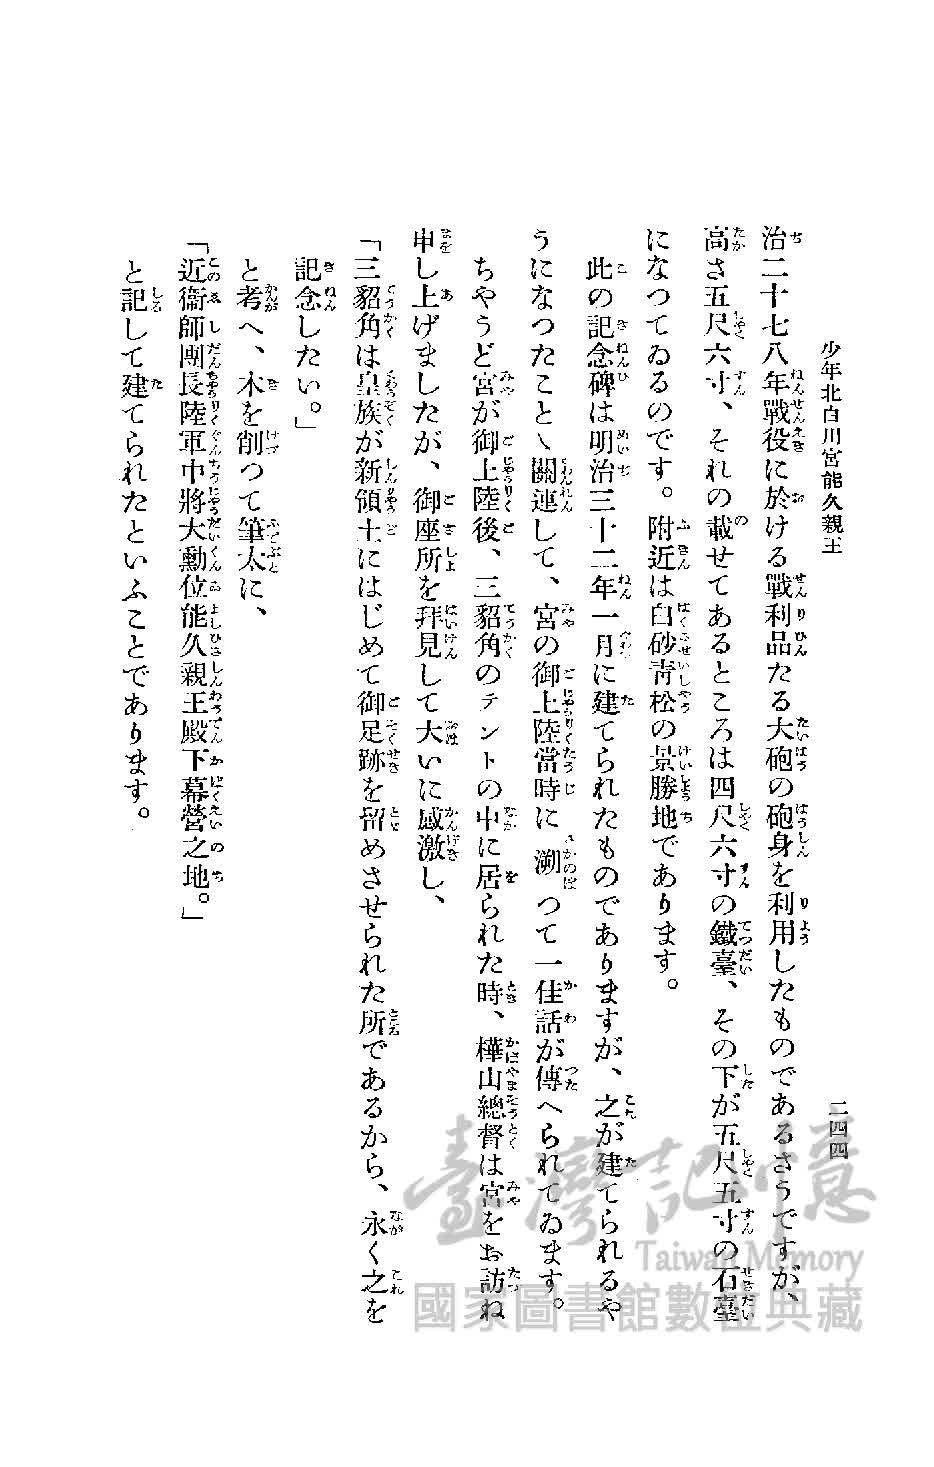 少年北白川宮能久親王
二四四
治二十七八年戰役に於ける戰利品たる大砲の砲身を利用したものであるさうですが、
高さ五尺六寸、それの載せてあるところは四尺六寸の鐵臺、その下が五尺五寸の石臺
になつてゐるのです。附近は白砂靑松の景勝地であります。
此の記念碑は明治三十二年一月に建てられたものでありますが、之が建てられるや
うになつたことゝ關連して、宮の御上陸當時に溯つて一佳話が傳へられてゐます。
ちやうど宮が御上陸後、三貂角のテントの中に居られた時、樺山總督は宮をお訪ね
申し上げましたが、御座所を拜見して大いに感激し、
「三貂角は皇族が新領土にはじめて御足跡を留めさせられた所であるから、永く之を
記念したい。」
と考へ、木を削つて筆太に、
「近衞師團長陸軍中將大勳位能久親王殿下幕營之地。」
と記して建てられたといふことであります。
臺灣記憶
Taiwan Memory
國家圖書館數位典藏